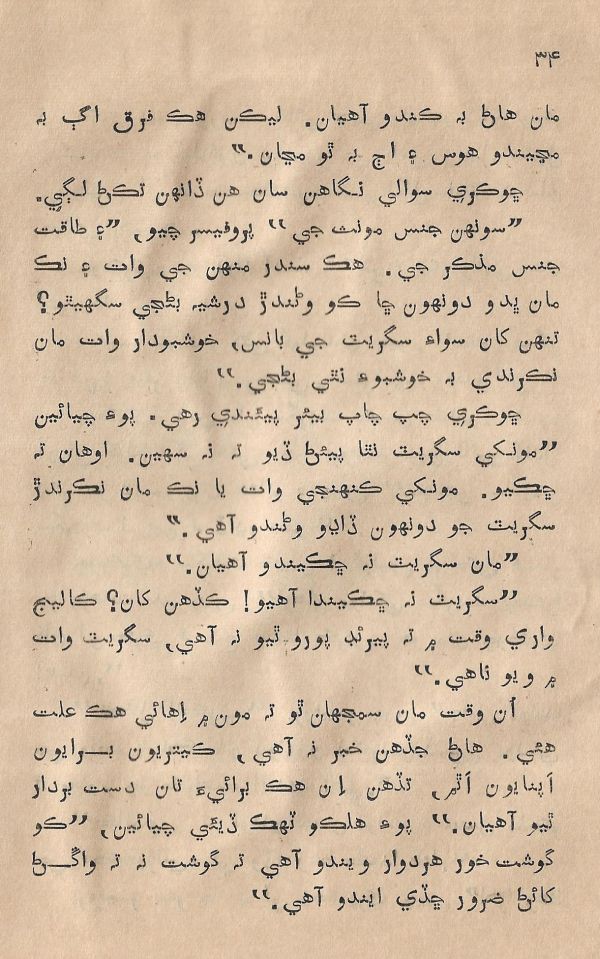 ۳۴
مان هاڻ به ڪندو آهيان. ليڪن هڪ فرق اڳ به
مڃيندو هوس ۽ اڄ به ٿو مڃان.”
ڇوڪري سوالي نگاهن سان هن ڏانهن تڪڻ لڳي.
”سونهن جنس مونث جي“ پروفيسر چيو, ”۽ طاقت
جنس مذڪر جي. هڪ سندر منهن جي وات ۽ نڪ
مان ڀدو دونهون ڇا ڪو وڻندڙ درشيه بڻجي سگهيٿو؟
تنهن کان سواءِ سگريٽ جي بانس, خوشبودار وات مان
نڪرندي به خوشبوءِ نٿي بڻجي.“
ڇوڪري چپ چاپ بيئر پيئندي رهي. پوءِ چيائين
”مونکي سگريٽ نٿا پيئڻ ڏيو ته نه سهين. اوهان ته
ڇڪيو. مونکي ڪنهنجي وات يا نڪ مان نڪرندڙ
سگريٽ جو دونهون ڏاڍو وڻندو آهي.”
”مان سگريٽ نه ڇڪيندو آهيان.“
”سگريٽ نه ڇڪيندا آهيو! ڪڏهن کان؟ ڪاليج
واري وقت ۾ ته پيرئڊ پورو ٿيو نه آهي, سگريٽ وات
۾ ويو ناهي.“
اُن وقت مان سمجهان ٿو ته مون ۾ اِهائي هڪ علت
هئي. هاڻ جڏهن خبر نه آهي, ڪيتريون بـرايون
اَپنايون اَٿم, تڏهن اِن هڪ برائيءَ تان دست بردار
ٿيو آهيان.” پوءِ هلڪو ٽهڪ ڏيئي چيائين, ”ڪو
گوشت خور هردوار ويندو آهي ته گوشت نه ته واڱـڻ
کائڻ ضرور ڇڏي ايندو آهي.“